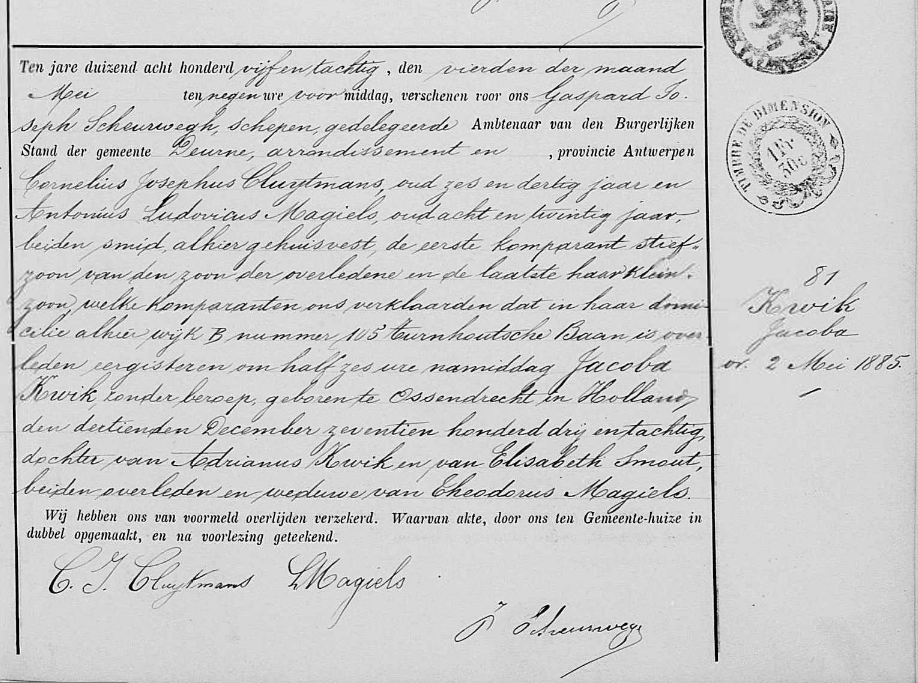 Ten jare duizend acht honderd vijf en tachtig, den vierden der maand
Mei ten negen ure voor middag, verschenen voor ons Gaspard Jo-
seph Scheurwegh, schepen, gedelegeerde Ambtenaar van den Burgerlijken
Stand der gemeente Deurne, arrondissement en , provincie Antwerpen
Cornelius Josephus Cluytmans, oud zes en dertig jaar en
Antonius Ludovicus Magiels, oud acht en twintig jaar,
beiden smid, alhier gehuisvest, de eerste komparant stief-
zoon van den zoon der overledene en de laatste haar klein-
zoon, welke komparanten ons verklaarden dat in haar domi-
cilie alhier wijk B nummer 105 turnhoutsche Baan is over-
leden eergisteren om half zes ure namiddag Jacoba
Kwik, zonder beroep, geboren te Ossendrecht in Holland,
den dertienden December zeventien honderd drij en tachtig,
dochter van Adrianus Kwik en van Elisabeth Smout,
beiden overleden en weduwe van Theodorus Magiels.
Wij hebben ons van voormeld overlijden verzekerd. Waarvan akte, door ons ten Gemeente-huize in
dubbel opgemaakt, en na voorlezing geteekend.
C. J. Cluytmans LMagiels
J Scheurwegh
TIMBRE DE DIMENSION
1Fr
30c
81
Kwik
Jacoba
ov. 2 Mei 1885.